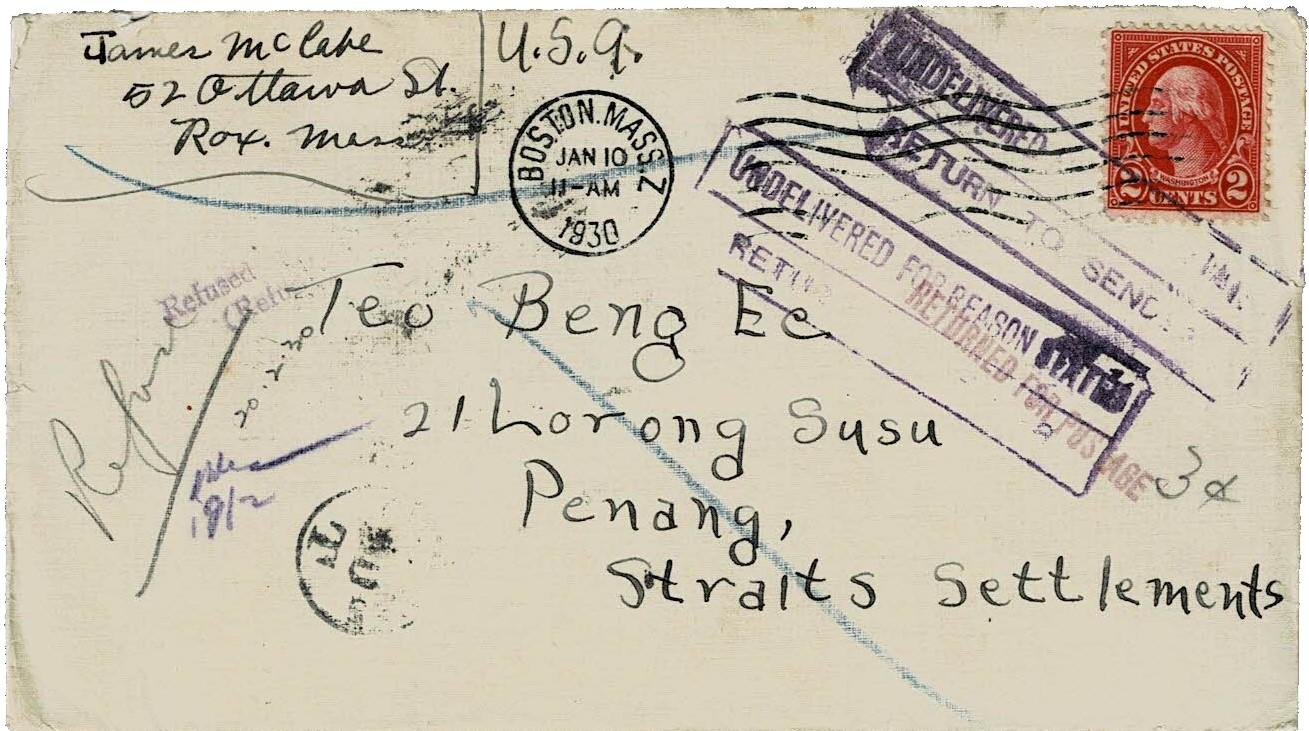 James McCabe
52 Ottawa St.
Rox. Mass
U.S.A.
BOSTON, MASS. 2
JAN 10
11-AM
1930
UNITED STATES POSTAGE
WASHINGTON
2 CENTS 2
UNDELIVERED
RETURN TO SENDER
UNDELIVERED FOR REASON STATED
RETURNED FOR POSTAGE
3¢
Refused
(Refu
Refuse
20·2·30
18/2
T
Teo Beng Ee
21 Lorong Susu
Penang,
Straits Settlements